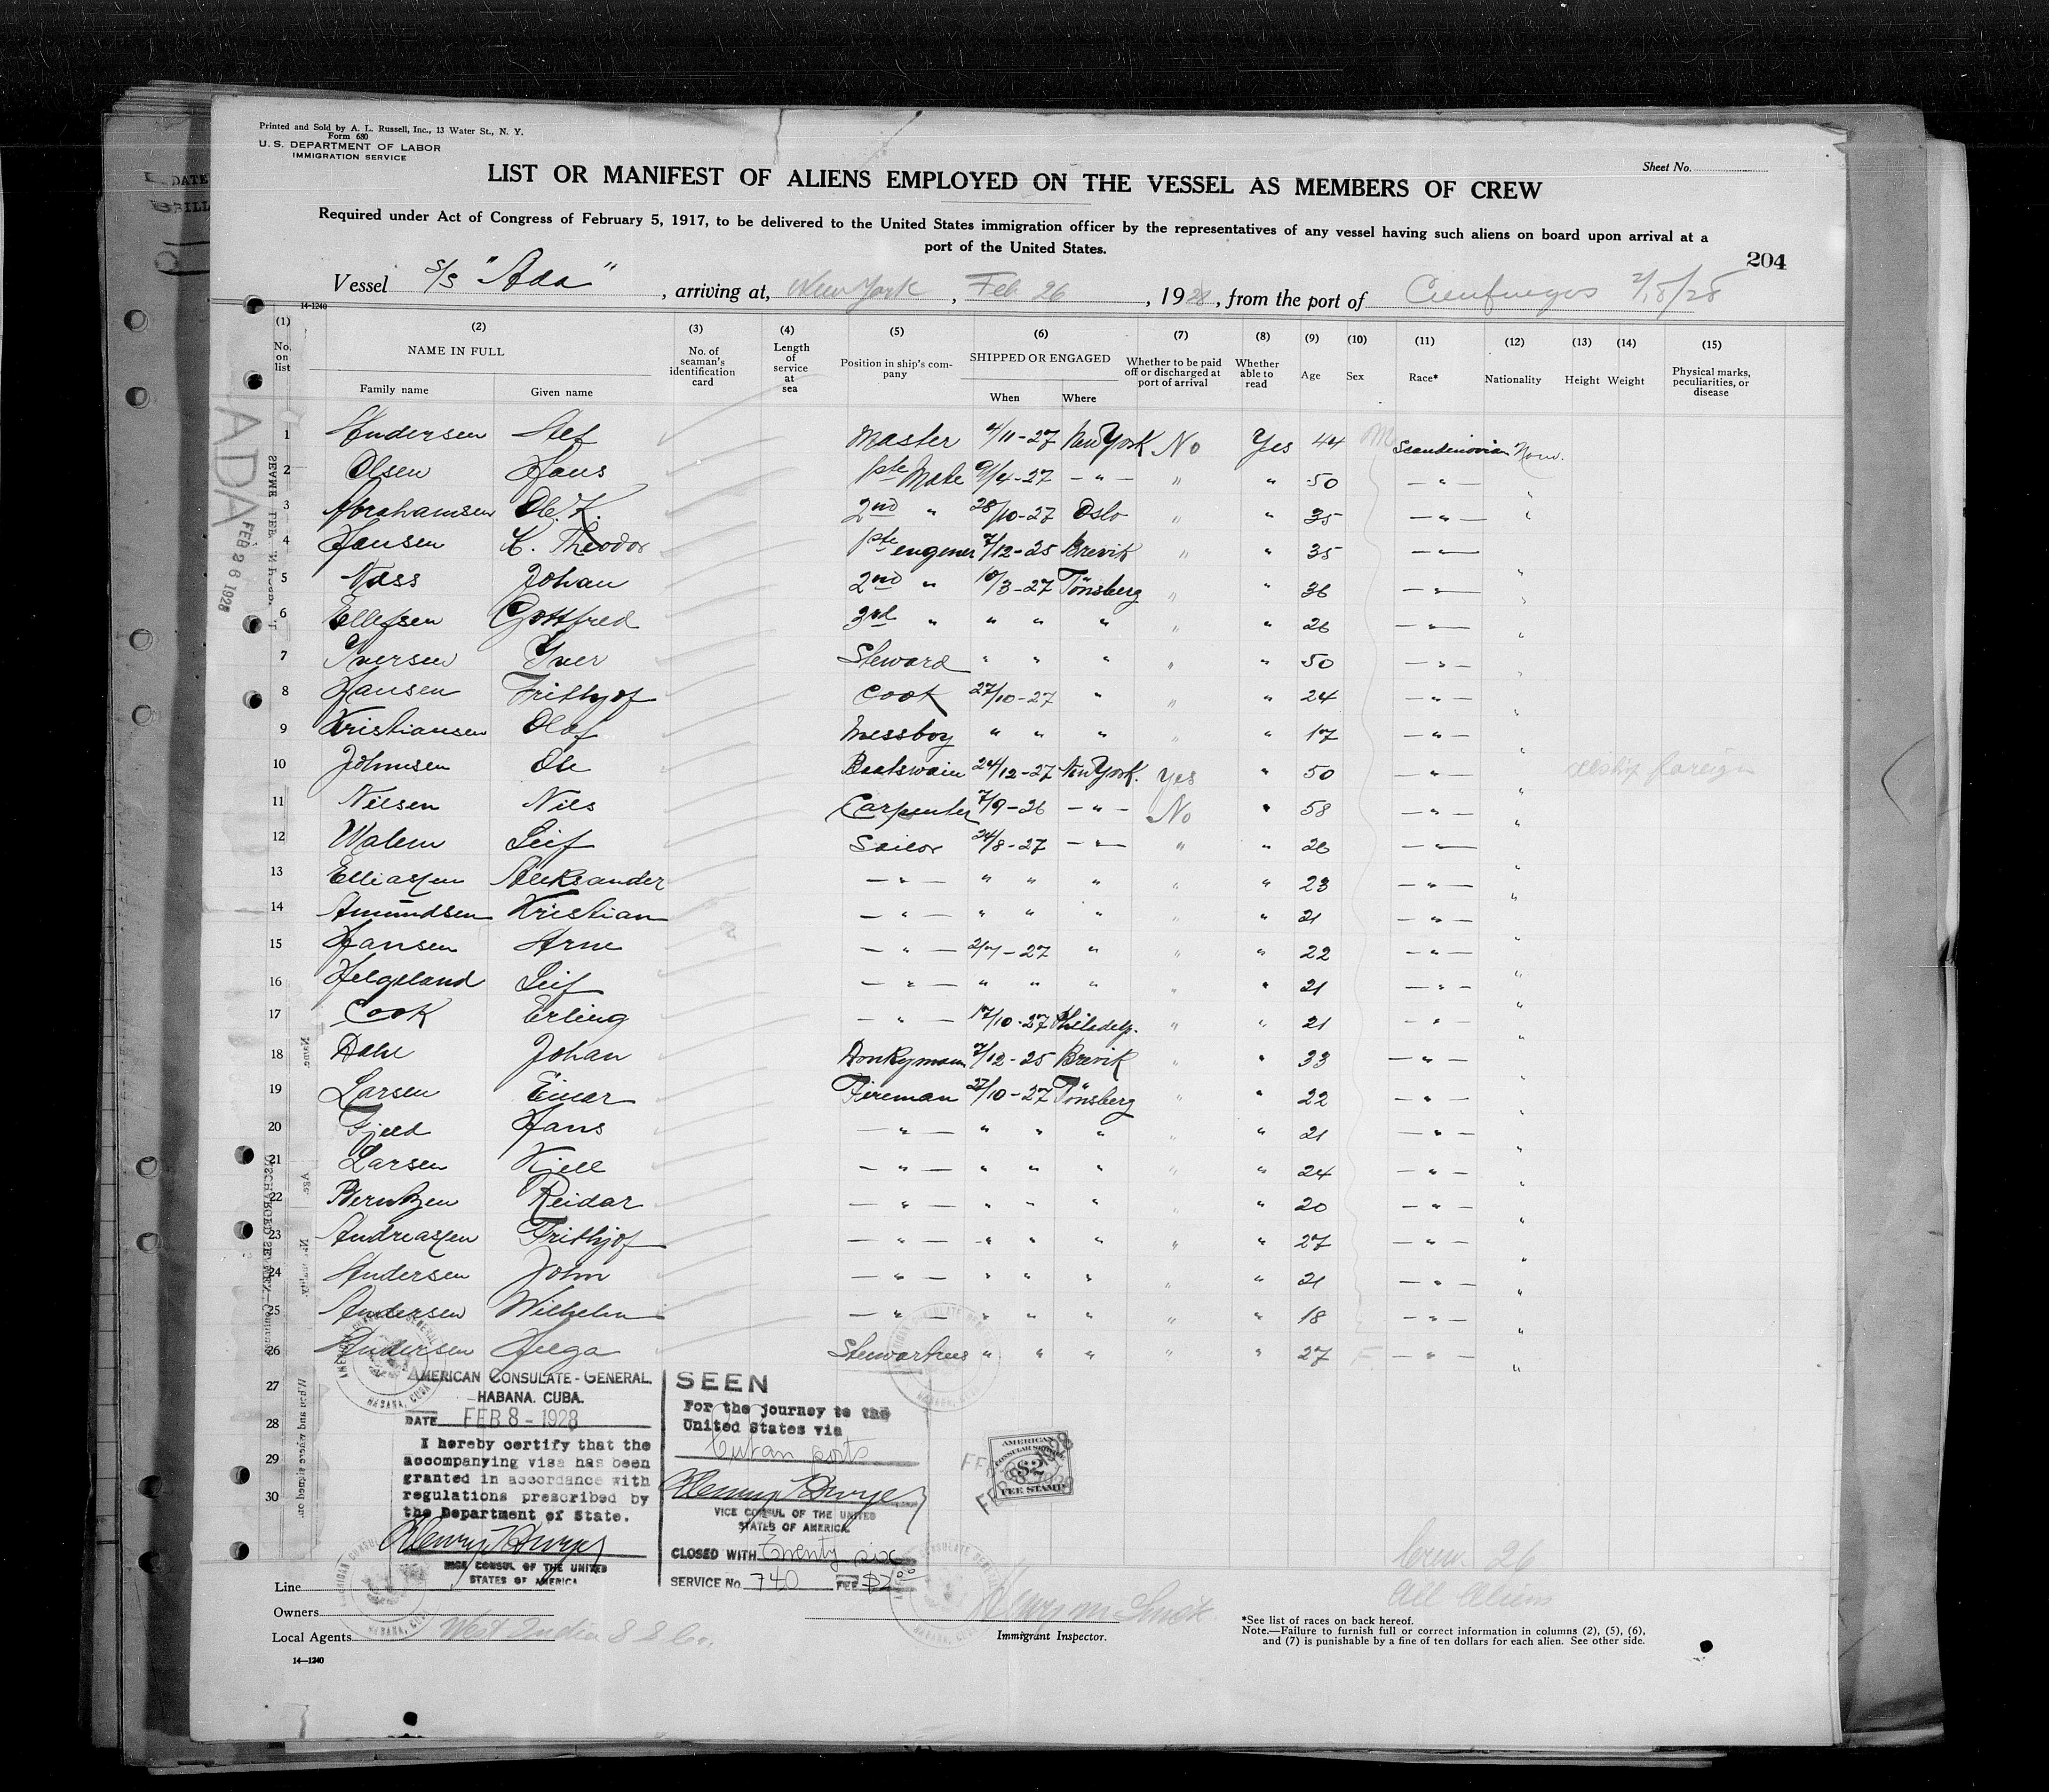 Printed and Sold by A. L. Russell, Inc., 13 Water St., N. Y.
Form 680
U. S. DEPARTMENT OF LABOR
IMMIGRATION SERVICE
Sheet No.
LIST OR MANIFEST OF ALIENS EMPLOYED ON THE VESSEL AS MEMBERS OF CREW
Required under Act of Congress of February 5, 1917, to be delivered to the United States immigration officer by the representatives of any vessel having such aliens on board upon arrival at a
port of the United States.
204
Vessel S/S "Ada", arriving at, New York, Feb 26, 1928, from the port of Cienfuegos 2/18/28
14-1240
(1) (2) (3) (4) (5) (6) (7) (8) (9) (10) (11) (12) (13) (14) (15)
No. on list NAME IN FULL Family name Given name No. of seaman's identification card Length of service at sea Position in ship's company SHIPPED OR ENGAGED When Where Whether to be paid off or discharged at port of arrival Whether able to read Age Sex Race* Nationality Height Weight Physical marks, peculiarities, or disease
1 Andersen Alf Master 4/11-27 New York No Yes 44 M Scandinovian Norw.
2 Olsen Hans 1ste Mate 9/4-27 — " — " " 50 — " — "
3 Abrahamsen Ole K. 2nd " 28/10-27 Oslo " " 35 — " — "
4 Hansen K. Theodor 1ste engener 7/12-25 Brevik " " 35 — " — "
5 Nass Johan 2nd " 18/3-27 Tönsberg " " 36 — " — "
6 Ellefsen Gottfred 3rd " " " " " " 26 — " — "
7 Iversen Iver Steward " " " " " 50 — " — "
8 Hansen Frithjof Cook 27/10-27 " " " 24 — " — "
9 Kristiansen Olaf Messboy " " " " " 17 — " — "
10 Johnsen Ole Boatswain 24/12-27 New York. Yes " 50 — " — " reship foreign
11 Nilsen Nils Carpenter 7/9-26 — " — No " 58 — " — "
12 Walem Leif Sailor 24/8-27 — " — " " 26 — " — "
13 Elliassen Aleksander — " — " " " " " 23 — " — "
14 Amundsen Kristian — " — " " " " " 21 — " — "
15 Hansen Arne — " — 2/7-27 " " " 22 — " — "
16 Helgeland Leif — " — " " " " " 21 — " — "
17 Cook Erling — " — 17/10-27 Philadelp. " " 21 — " — "
18 Dahl Johan Donkyman 7/12-25 Brevik " " 33 — " — "
19 Larsen Einar Fireman 27/10-27 Tönsberg " " 22 — " — "
20 Fjeld Hans — " — " " " " " 21 — " — "
21 Larsen Kjell — " — " " " " " 24 — " — "
22 Berntzen Reidar — " — " " " " " 20 — " — "
23 Andreassen Frithjof — " — " " " " " 27 — " — "
24 Andersen John — " — " " " " " 21 — " — "
25 Andersen Wilhelm — " — " " " " " 18 — " — "
26 Andersen Helga Stewartress " " " " " 27 F — " — "
27
28
29
30
ADA
FEB 26 1928
AMERICAN CONSULATE-GENERAL.
HABANA. CUBA.
DATE FEB 8 - 1928
I hereby certify that the
accompanying visa has been
granted in accordance with
regulations prescribed by
the Department of State.
VICE CONSUL OF THE UNITED
STATES OF AMERICA
SEEN
For the journey to the
United States via
Cuban ports
VICE CONSUL OF THE UNITED
STATES OF AMERICA
CLOSED WITH Twenty six
SERVICE No. 740 FEE $2.00
AMERICAN CONSULAR SERVICE
$2
FEE STAMP
Crew. 26
All Aliens
Line
Owners
Local Agents West India S S Co.
14—1240
Immigrant Inspector.
*See list of races on back hereof.
Note.—Failure to furnish full or correct information in columns (2), (5), (6),
and (7) is punishable by a fine of ten dollars for each alien. See other side.